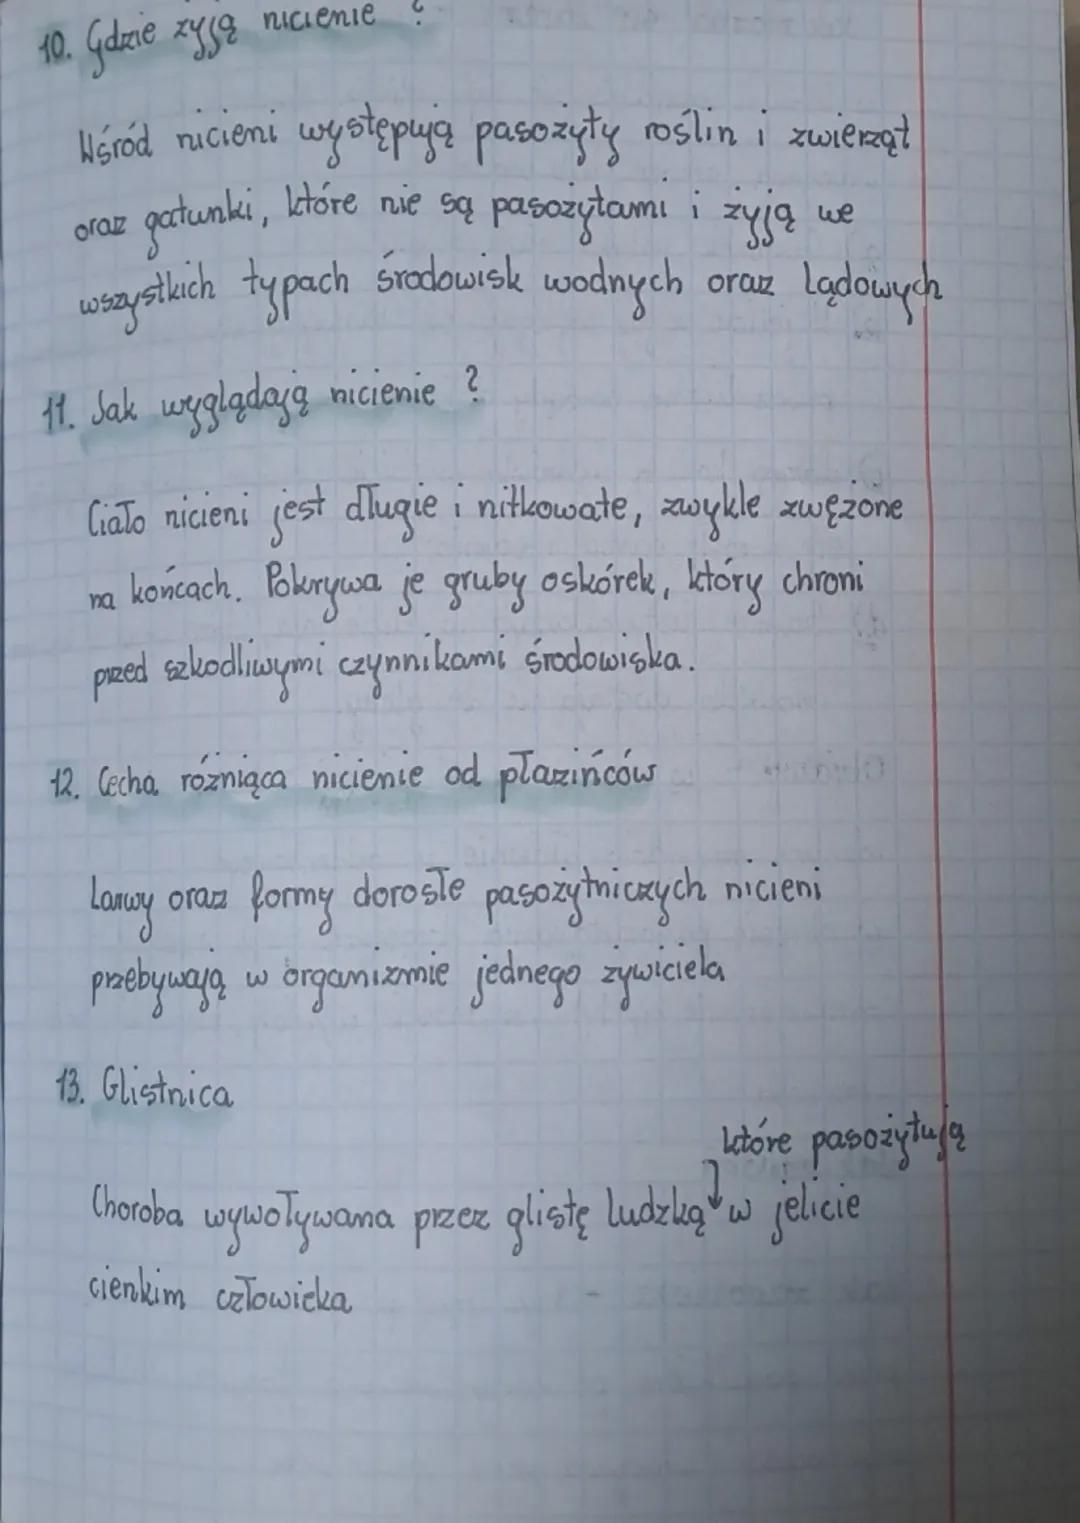 10. Gdzie żyją nicienie ?
Wśród nicieni występują pasożyty roślin i zwierząt
oraz gatunki, które nie są pasożytami i żyją we
wszystkich typach środowisk wodnych oraz lądowych
11. Jak wyglądają nicienie ?
Ciało nicieni jest długie i nitkowate, zwykle zwężone
na końcach. Pokrywa je gruby oskórek, który chroni
przed szkodliwymi czynnikami środowiska.
12. Cecha różniąca nicienie od płazińców
Larwy oraz formy dorosłe pasożytniczych nicieni
przebywają w organizmie jednego żywiciela
13. Glistnica
które pasożytują
Choroba wywoływana przez glistę ludzką w jelicie
cienkim człowieka